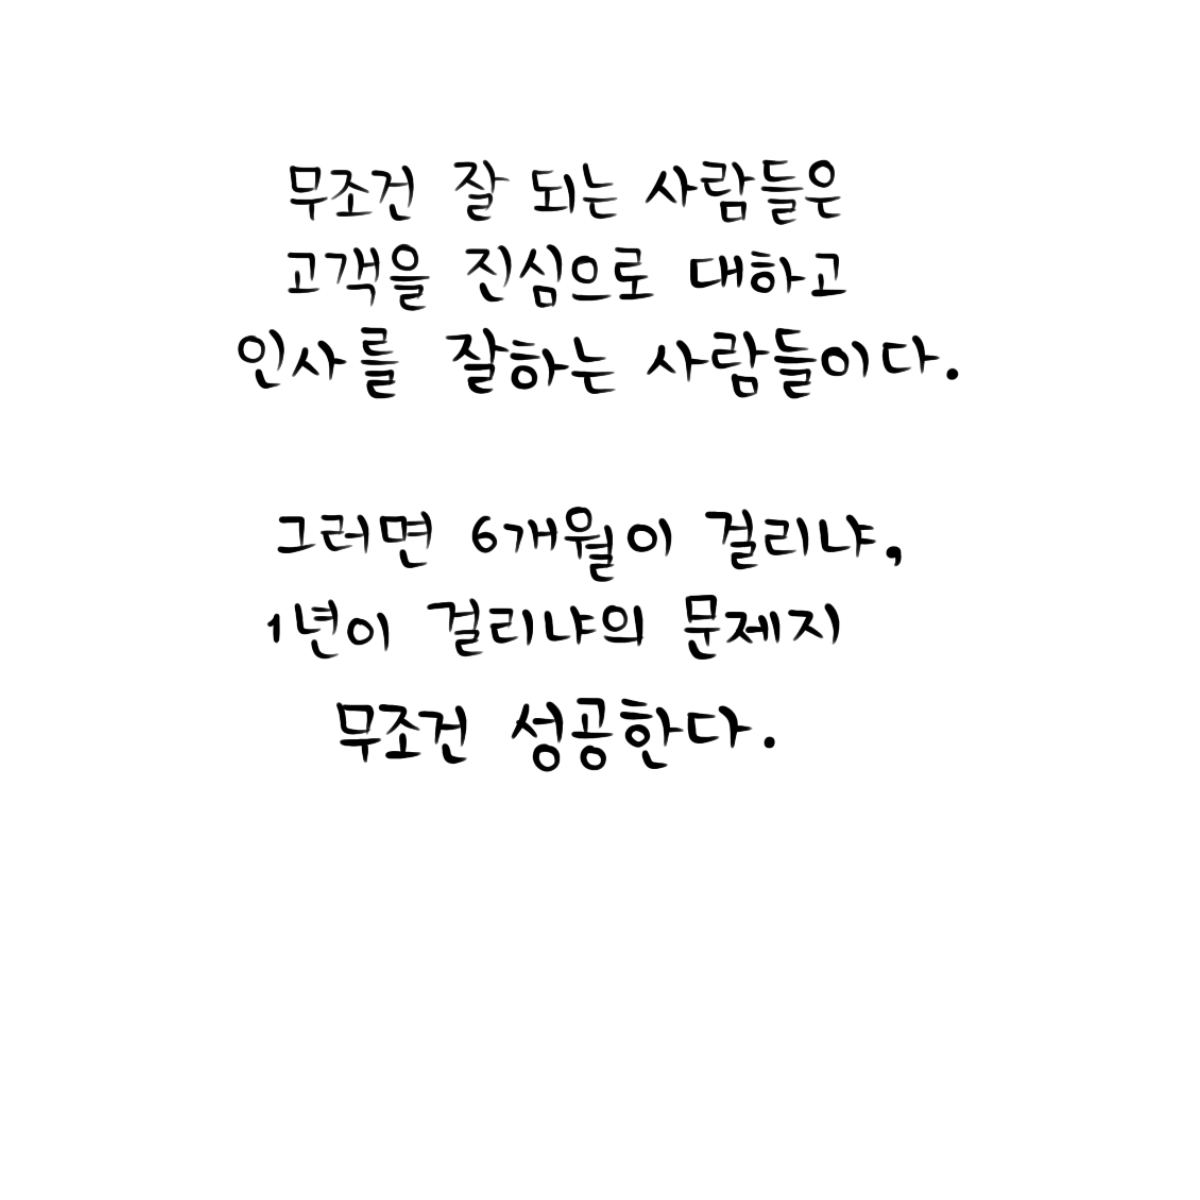 무조건 잘 되는 사람들은
고객을 진심으로 대하고
인사를 잘하는 사람들이다.
그러면 6개월이 걸리냐,
1년이 걸리냐의 문제지
무조건 성공한다.